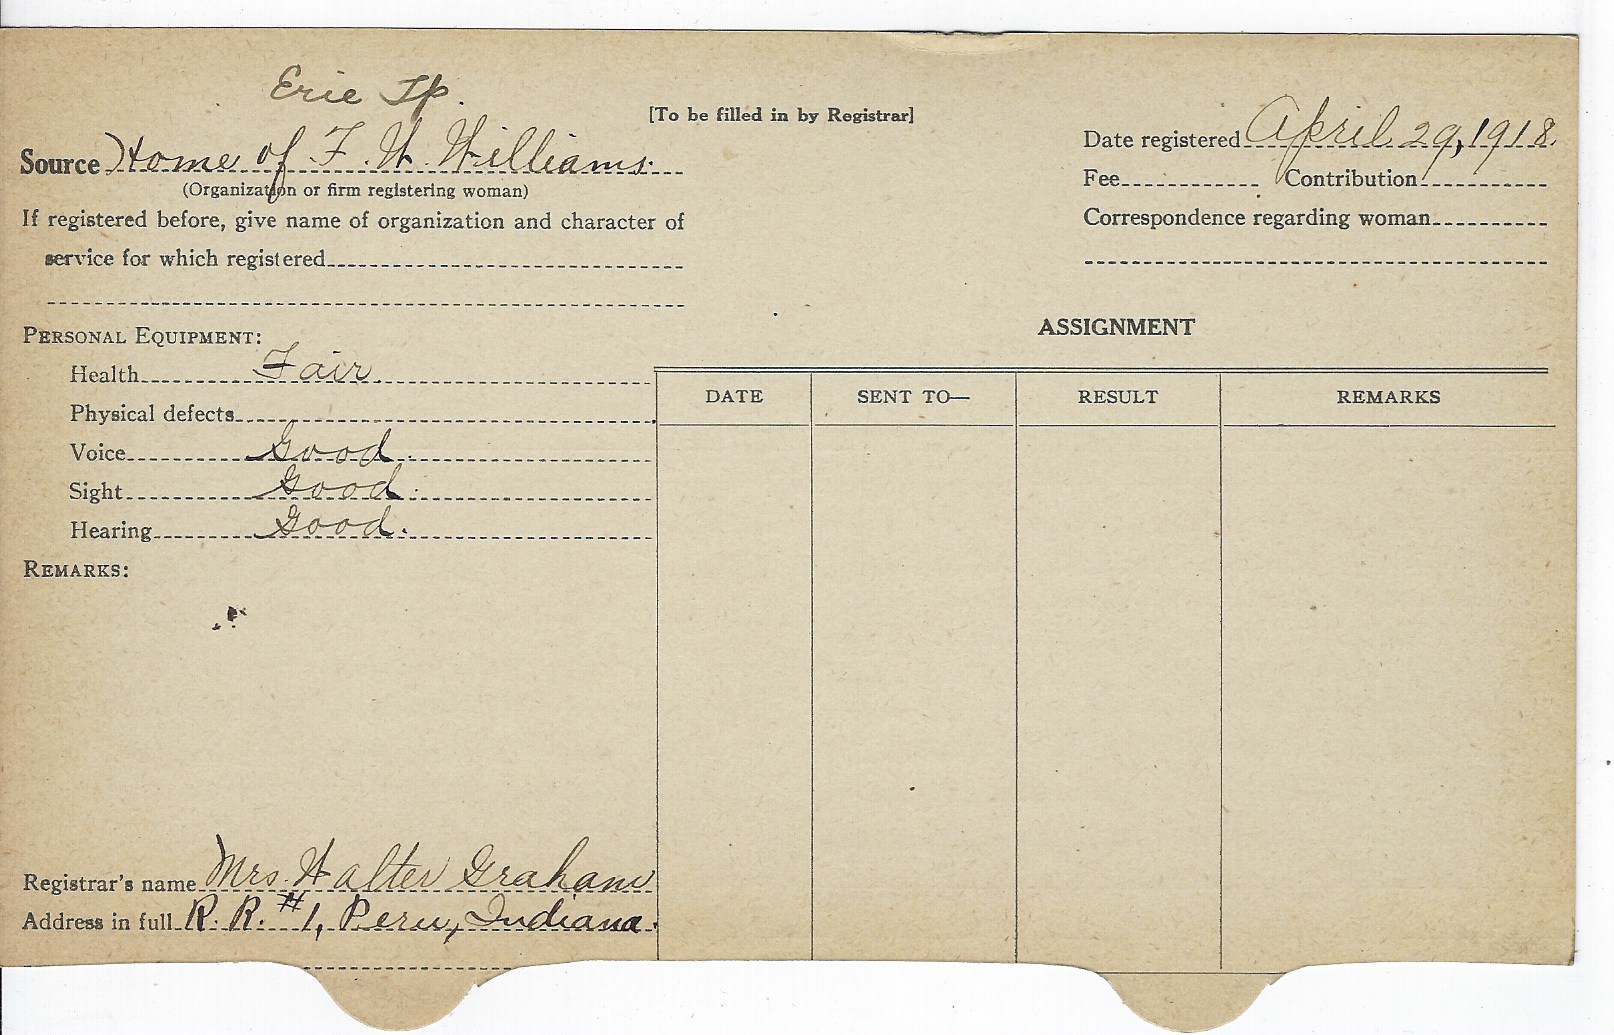 Erie Tp.
[To be filled in by Registrar]
Source Home of F. W. Williams.
(Organization or firm registering woman)
Date registered April 29, 1918.
Fee Contribution
If registered before, give name of organization and character of
service for which registered
Correspondence regarding woman
PERSONAL EQUIPMENT:
Health Fair.
Physical defects
Voice Good.
Sight Good.
Hearing Good.
REMARKS:
ASSIGNMENT
DATE SENT TO— RESULT REMARKS
Registrar's name Mrs. Walter Graham
Address in full R. R. #1, Peru, Indiana.